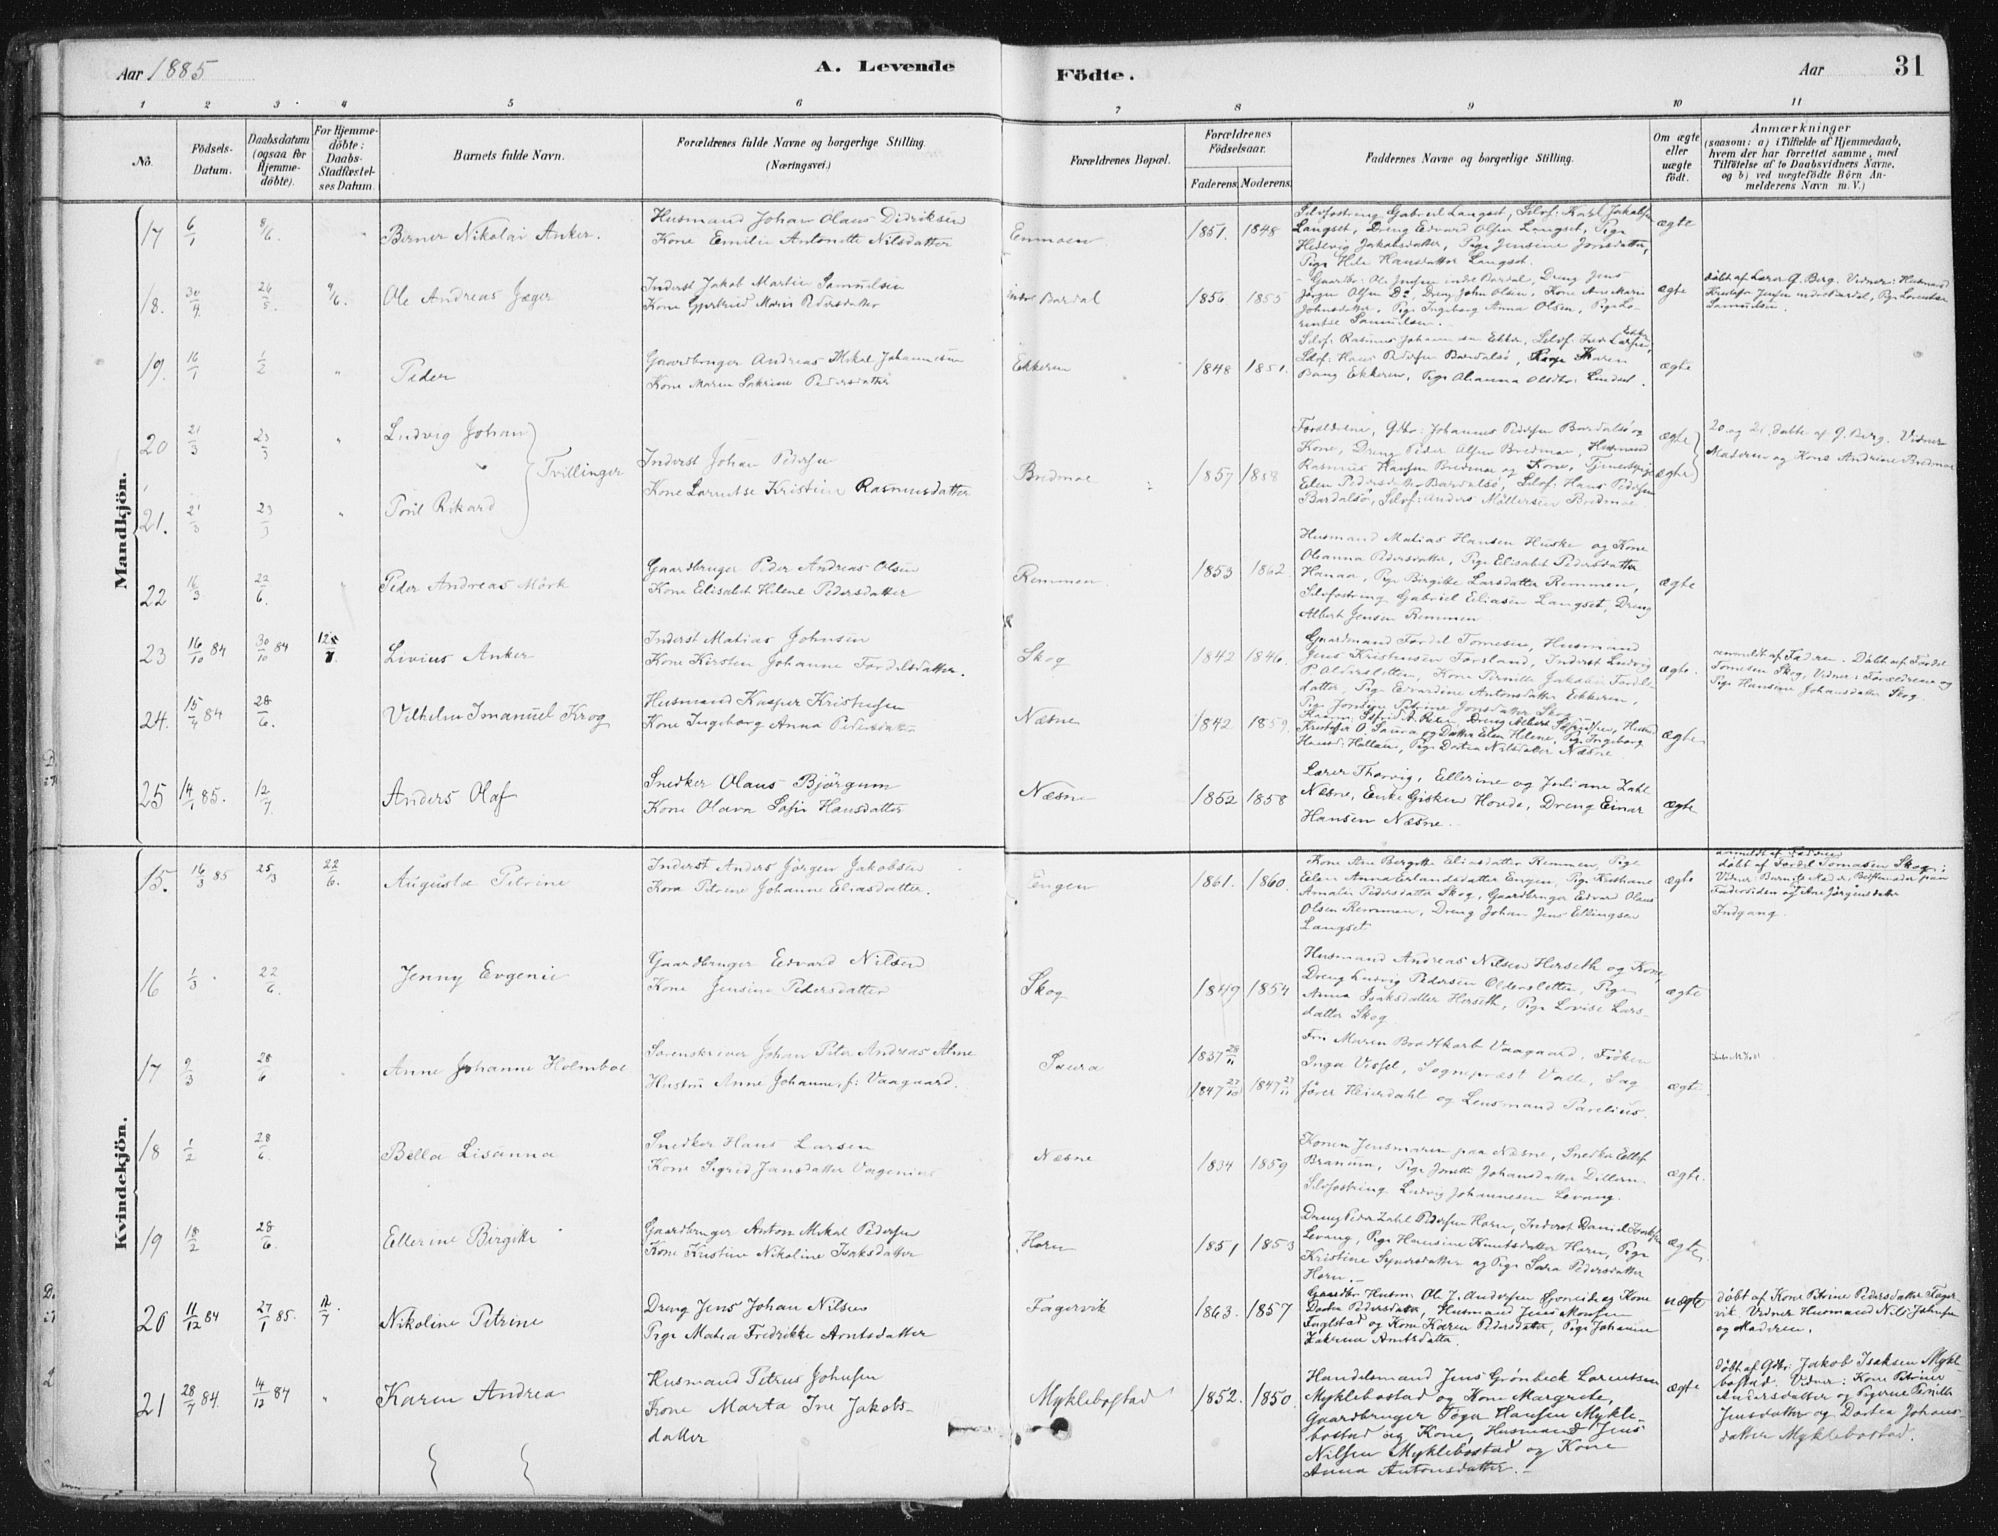 Aar 1885
A. Levende
Födte.
Aar
31
1 2 3 4 5 6 7 8 9 10 11
No.
Födsels-
Datum.
Daabsdatum
(ogsaa for
Hjemme-
döbte).
For Hjemme-
döbte:
Daabs-
Stadfæstel-
ses Datum.
Barnets fulde Navn.
Forældrenes fulde Navne og borgerlige Stilling.
(Næringsvei.)
Forældrenes Bopæl.
Forældrenes
Födselsaar.
Faderens. Moderens.
Faddernes Navne og borgerlige Stilling.
Om ægte
eller
uægte
födt.
Anmærkninger
(saasom: a) i Tilfælde af Hjemmedaab,
hvem der har forrettet samme, med
Tilföielse af to Daabsvidners Navne,
og b) ved uægtefödte Börn An-
melderens Navn m. V.)
Mandkjön.
17 6/1 8/6. Berner Nikolai Anker.
Husmand Johan Olaus Didriksen
Kone Emilie Antonette Nilsdatter
1851. 1848
Langset, Dreng Edvard Olsen Langset, Pige
Hedevig Jakobsdatter, Pige Jensine Jonsdatter,
Hansdatter Langset.
ægte
18. 30/4 26/5. 9/6. Ole Andreas Jæger
Inderst Jakob Martin Samuelsen
Kone Gjertrud Maria Pedersdatter
indre Bardal 1856 1855
Jörgen Olsen Do, Dreng John Olsen, Kone Ane Marie
Johnsdatter, Pige Ingeborg Anna Olsen, Pige Lo-
rentse Samuelsen.
ægte
döbt af Lærer G. Berg. Vidner: Husmand
Kristofer Jensen indre Bardal, Pg. Lorentse
Samuelsen.
19. 16/1 1/2 " Peder
Gaardbruger Andreas Mikal Johannesen
Kone Maren Sakrine Pedersdatter
Ekkeren 1848 1851.
Bang Ekkeren, Pige Olianna Olsdtr. Lindset.
ægte
20 21/3 23/3 " Ludvig Johan
Tvillinger
Inderst Johan Pedersen
Kone Larentse Kristine Rasmusdatter
Bredmoe 1857 1858
21. 21/3 23/3 " Poul Rikard
Forældrene, Gbr. Johannes Pedersen Bardalsö og
Kone, Dreng Peder Olsen Bredmoe, Husmand
Rasmus Hansen Bredmoe og Kone, Tjenestepige
Elen Pedersdatter Bardalsö, Selvf: Hans Pedersen
Bardalsö, Selvf: Anders Möllersen Bredmoe.
ægte
ægte
20. og 21. döbte af G. Berg. Vidner
Moderen og Kone Andrine Bredmoe
22 16/3 22/6. " Peder Andreas Mörk
Gaardbruger Peder Andreas Olsen
Kone Elisabet Helene Pedersdatter
Remmen. 1853 1862
Husmand Matias Hansen Huske og Kone
Oleanna Pedersdatter, Pige Elisabet Pedersdatter
Hanaa, Pige Birgitte Larsdatter Remmen,
Selvfostring Gabriel Eliasen Langset, Dreng
Albert Jensen Remmen.
ægte
23 16/10 84 30/10 84 Livius Anker
Inderst Matias Johnsen
Kone Kirsten Johanne Tordelsdatter.
Skog 1842 1846.
Gaardmand Tordel Tomesen, Husmand
Jens Kristensen Forsland, Inderst Ludvig
P. Oldersletten, Kone Pernille Jakobine Tordels-
datter, Pige Edvardine Antonsdatter Ekkeren,
Petrine Jonsdatter Skog
ægte.
anmeldt af Faderen. Döbt af Tordel
Tomesen Skog, Vidner: Forældrene og
Pige Hansine Johansdatter Skog
24. 15/4 84 28/6. Vilhelm Imanuel Krog
Husmand Kasper Kristensen
Kone Ingeborg Anna Pedersdatter
Næsne 1842 1859.
Kristofer O. Saura og Datter Elen Helene, Pige Ingeborg
Hansd. Hallan, Pige Dortea Nilsdatter Næsne
ægte
25 14/1 85. 12/7 Anders Olaf
Snedker Olaus Bjørgum
Kone Olava Sofie Hansdatter
Næsne 1852 1858
Lærer Thorvig, Ellerine og Juliane Zahl
Næsne, Enke Gisken Hovde, Dreng Einar
Hansen Næsne.
ægte
Kvindekjön.
15. 16/3 85 25/3 22/6. Augusta Petrine
Inderst Anders Jörgen Jakobsen
Kone Petrine Johanne Eliasdatter.
Engen 1861. 1860.
Kone Ane Bergitte Eliasdatter Remmen, Pige
Elen Anna Erlandsdatter Engen, Pige Kristiane
Amalie Pedersdatter Skog, Gaardbruger Edvard Olaus
Olsen Remmen, Dreng Johan Jens Ellingsen
Langset
ægte
anmeldt af Faderen
döbt af Tordel Tomasen Skog;
Vidner: Barnets Moder, Bedstemoder paa
Fadersiden og Ane Jörgensdatter
Indgang.
16 1/3 22/6. Jenny Evgenie
Gaardbruger Edvard Nilsen
Kone Jensine Pedersdatter
Skog 1849 1854
Husmand Andreas Nilsen Herseth og Kone,
Dreng Ludvig Pedersen Oldersletten, Pige
Anna Isaksdatter Herseth, Pige Lovise Lars-
datter Skog
ægte
17 9/3 28/6 Anne Johanne Holmboe
Sorenskriver Johan Peter Andreas Alme
Hustru Anne Johanne, f: Vaagaard.
Saura 1837 28/11
1847 27/10 1847 27/11
Fru Maren Vaagaard, Fröken
Inga Vissel, Sogneprest Valle, Sag
förer Heierdahl og Lensmand Parelius.
ægte
18 1/2 28/6 Bella Lisanna
Snedker Hans Larsen
Kone Sigrid Jansdatter
Næsne 1834 1859
Konen Jensmaren paa Næsne, Snedker Ellef
Branum, Pige Jonette Johansdatter Dillern
Selvfostring Ludvig Johannesen Levang.
ægte.
19 18/2 28/6. Ellerine Birgitte
Gaardbruger Anton Mikal Pedersen
Kone Kristine Nikoline Isaksdatter
Horn 1851 1853
Dreng Peder Zahl Pedersen Horn, Inderst Daniel Isaksen
Levang, Pige Hansine Knutsdatter Horn, Pige
Kristine Syversdatter og Pige Sara Pedersdatter
Horn.
ægte
20 11/12 84 27/1 85. 12/7. Nikoline Petrine
Dreng Jens Johan Nilsen
Pige Matea Fredrikke Arntsdatter
Fagervik 1863. 1857
Gaardbr. Husm. Ole J. Andersen og Kone
Dortea Pedersdatter, Husmand Jens Monsen
og Kone Karen Pedersdatter, Pige Johanne
Zakrine Arntsdatter.
uægte
döbt af Kone Petrine Pedersdatter Fager-
vik Vidner Husmand Nils Johnsen
og Moderen.
21 28/7 84. 14/12 84 " Karen Andrea
Husmand Petrus Johnsen
Kone Marta Ine Jakobs-
datter
Myklebostad 1852. 1850.
Handelsmand Jens Grönbeck Lorentsen
Myklebostad og Kone Margrete,
Gaardbruger Töger Hansen Mykle-
bostad og Kone, Husmand Jens
Nilsen Myklebostad og Kone
Anna Antonsdatter.
ægte
döbt af Gdbr. Jakob Isaksen Mykl-
bostad. Vidner: Kone Petrine
Andersdatter og Pigerne Pernille
Jensdatter og Dortea Johans-
datter Myklebostad.